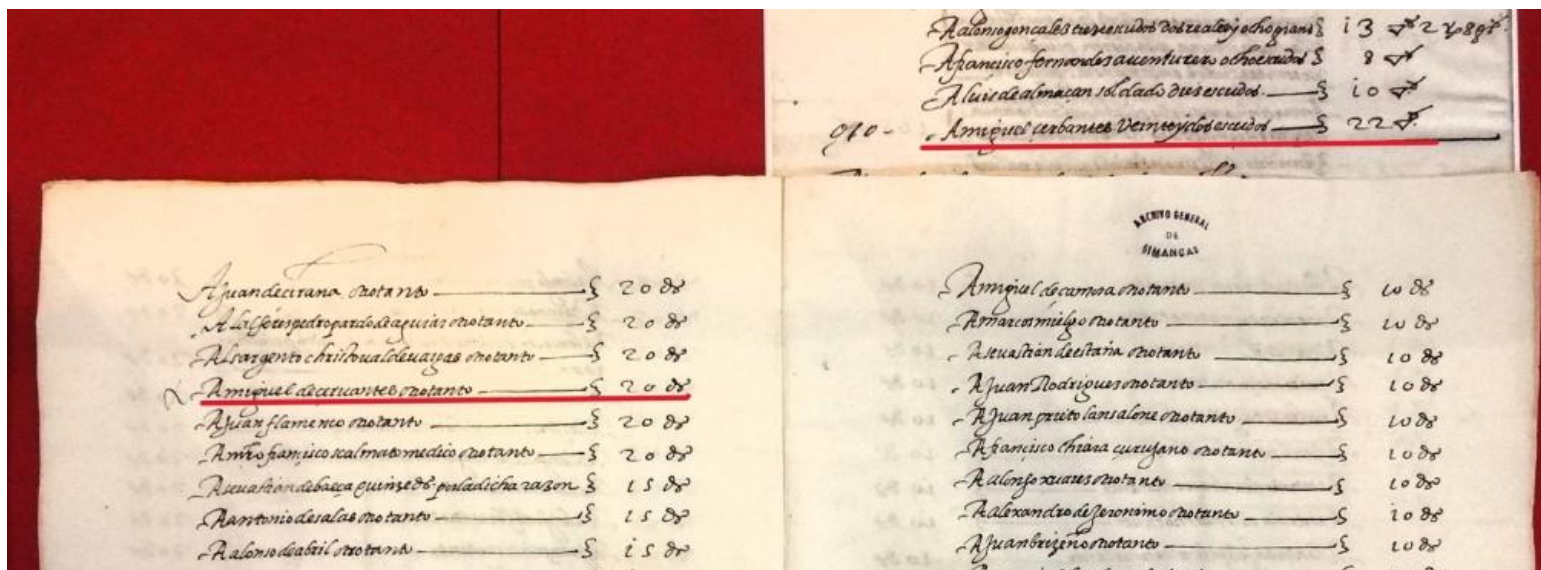 A alonso gonçales treze escudos dos reales y ocho granos 13 2 8 gr
A francisco fernandes aventurero ocho escudos 8
A luis de almaçan soldado diez escudos 10
A miguel cerbantes Veinte y dos escudos 22
ARCHIVO GENERAL
DE
SIMANCAS
A Juan de otro tanto 20 ds
Al alferes pedro pardo de aguiar otro tanto 20 ds
Al sargento christoval de vargas otro tanto 20 ds
A miguel de cervantes otro tanto 20 ds
A Juan flamenco otro tanto 20 ds
A mro francisco scalmato medico otro tanto 20 ds
A sevastian de baeça quinze ds por la dicha razon 15 ds
A antonio de salas otro tanto 15 ds
A alonso de abril otro tanto 15 ds
A miguel de camora otro tanto 10 ds
A marcos mielgo otro tanto 10 ds
A sevastian de otro tanto 10 ds
A Juan Rodrigues otro tanto 10 ds
A Juan prieto lansalone otro tanto 10 ds
A francisco chiara curujano otro tanto 10 ds
A alonso xuares otro tanto 10 ds
A alexandro de Jeronimo otro tanto 10 ds
A Juan brizeño otro tanto 10 ds